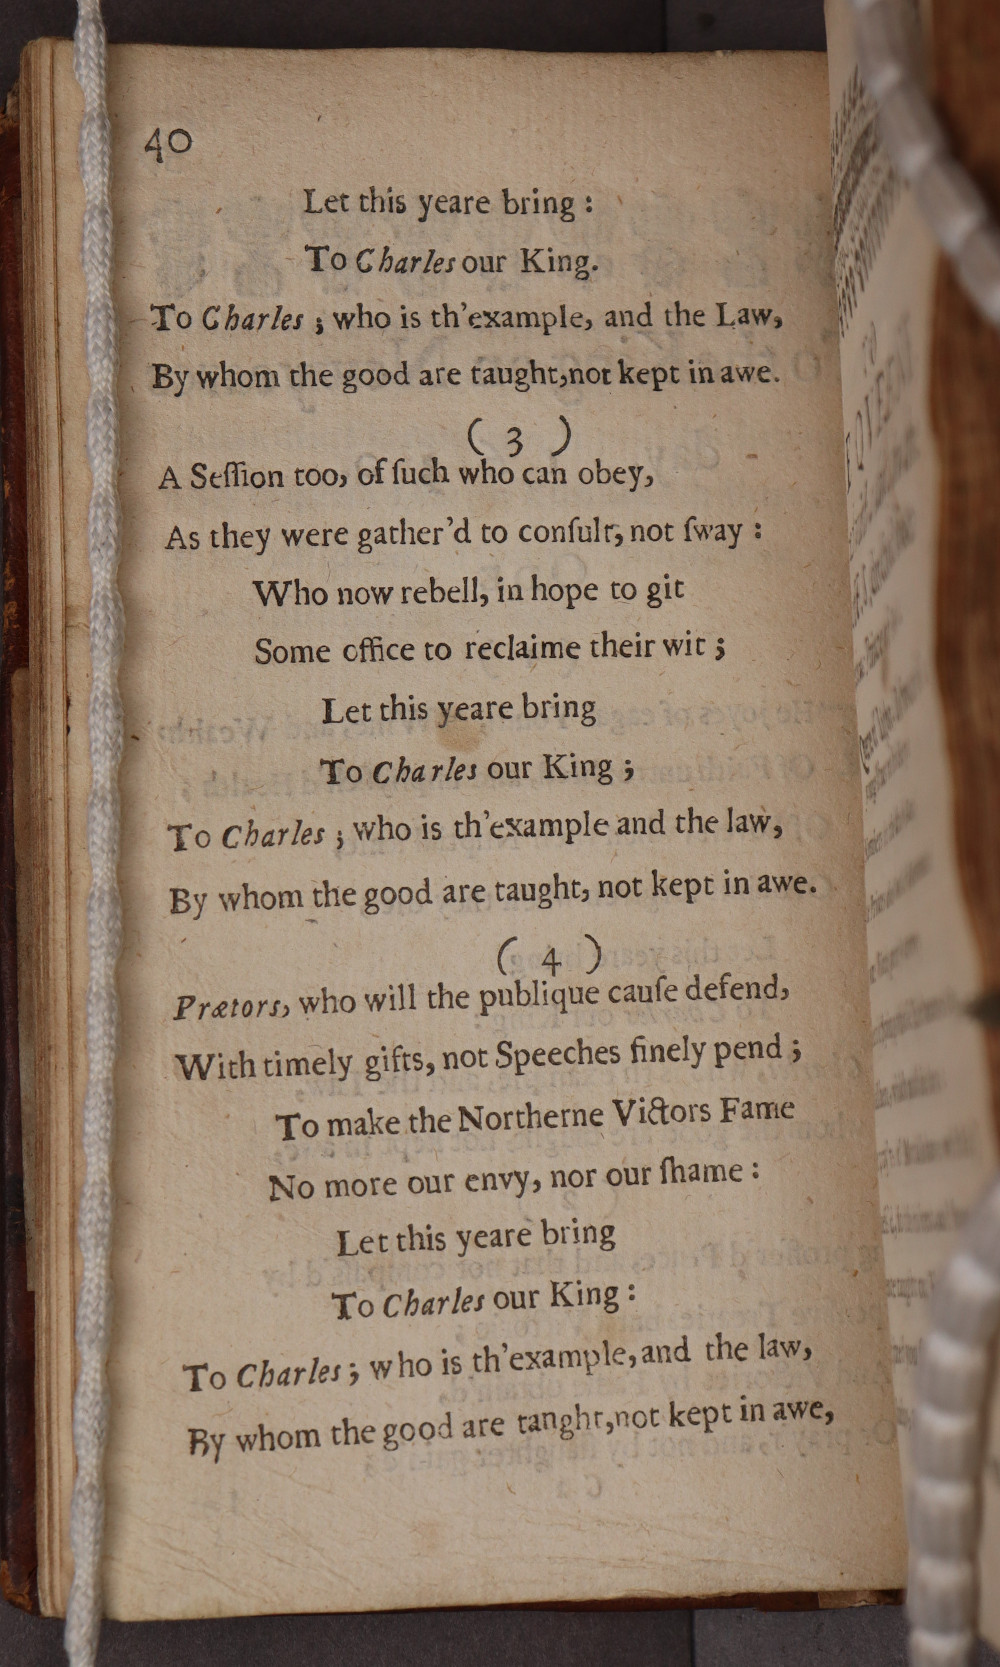 40
Let this yeare bring :
To Charles our King.
To Charles ; who is th'example, and the Law,
By whom the good are taught,not kept in awe.
( 3 )
A Seſſion too, of ſuch who can obey,
As they were gather'd to conſult, not ſway :
Who now rebell, in hope to git
Some office to reclaime their wit ;
Let this yeare bring
To Charles our King ;
To Charles ; who is th'example and the law,
By whom the good are taught, not kept in awe.
( 4 )
Prætors, who will the publique cauſe defend,
With timely gifts, not Speeches finely pend ;
To make the Northerne Victors Fame
No more our envy, nor our ſhame :
Let this yeare bring
To Charles our King :
To Charles ; who is th'example, and the law,
By whom the good are tanght,not kept in awe,